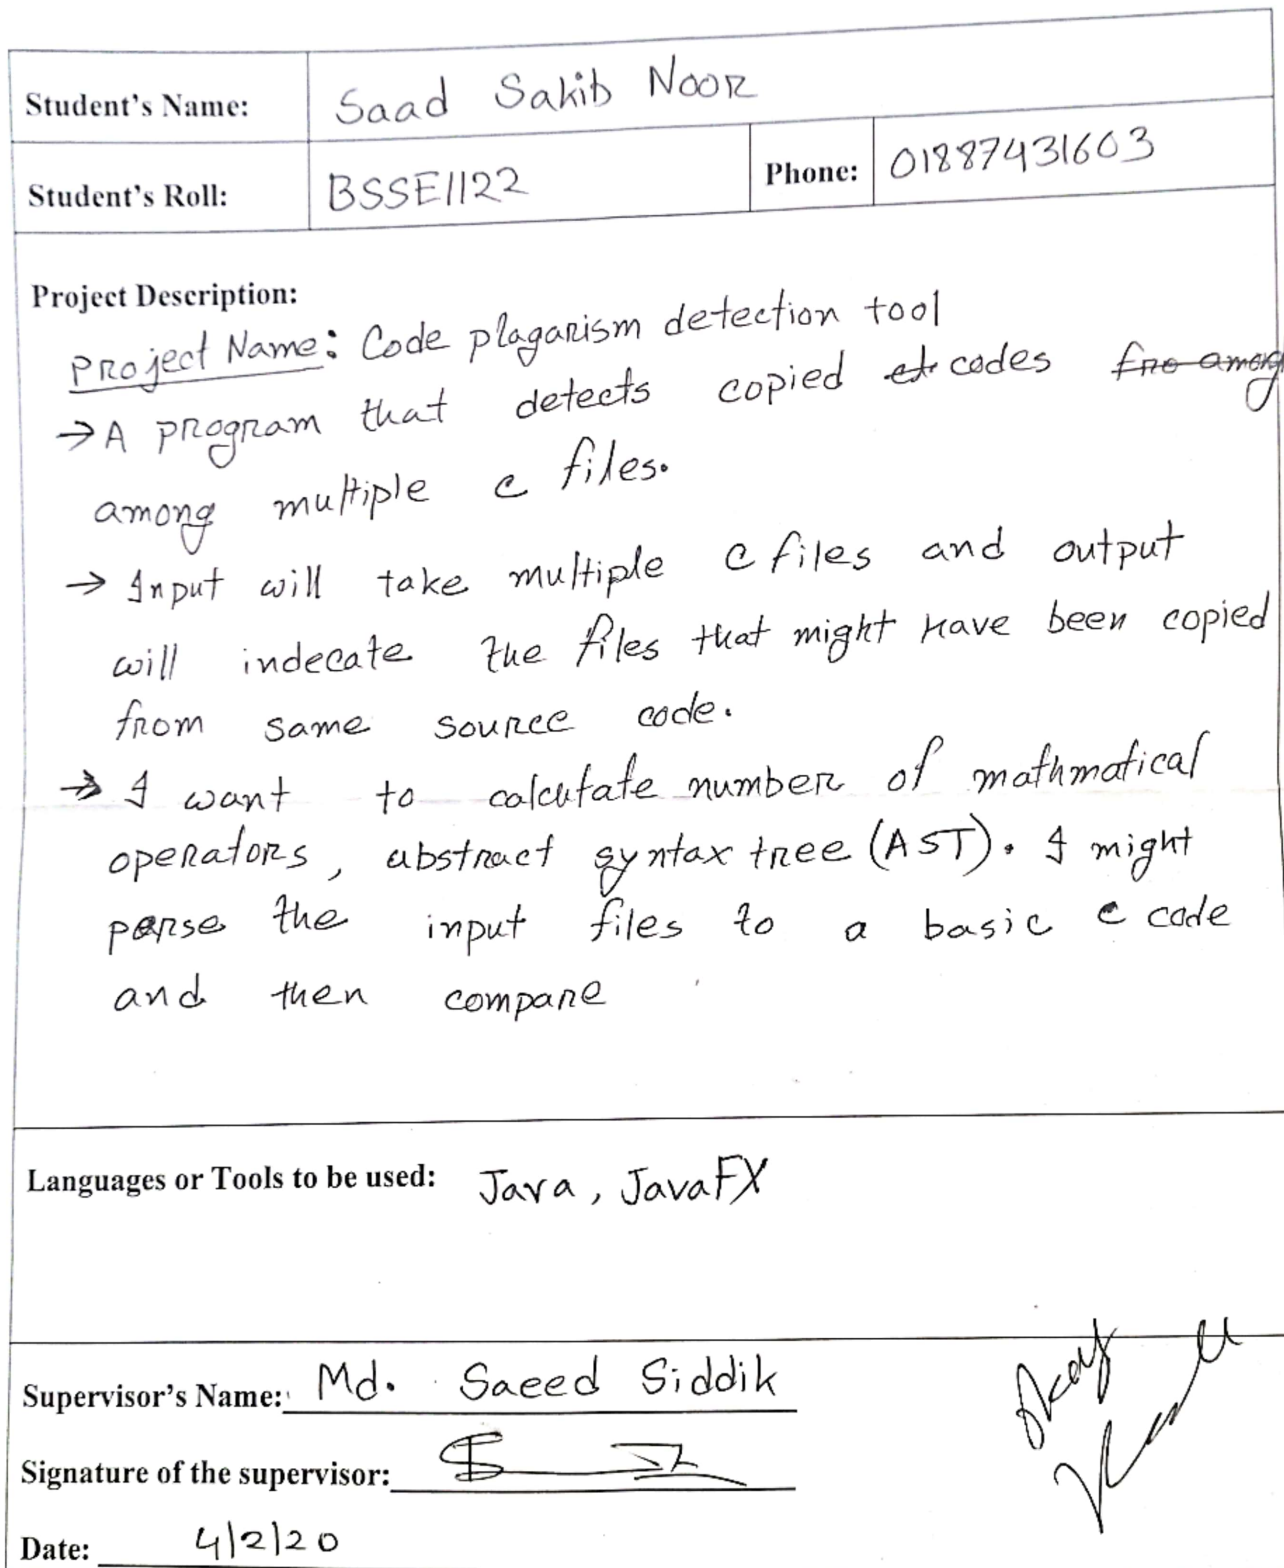 Student's Name: Saad Sakib Noor
Student's Roll: BSSE1122 Phone: 01887431603
Project Description:
Project Name: Code plagarism detection tool
→ A program that detects copied codes
among multiple c files.
→ Input will take multiple c files and output
will indecate the files that might have been copied
from same source code.
→ I want to calcutate number of mathmatical
operators, abstract syntax tree (AST). I might
parse the input files to a basic c code
and then compare
Languages or Tools to be used: Java, JavaFX
Supervisor's Name: Md. Saeed Siddik
Signature of the supervisor:
Date: 4/2/20
Okay